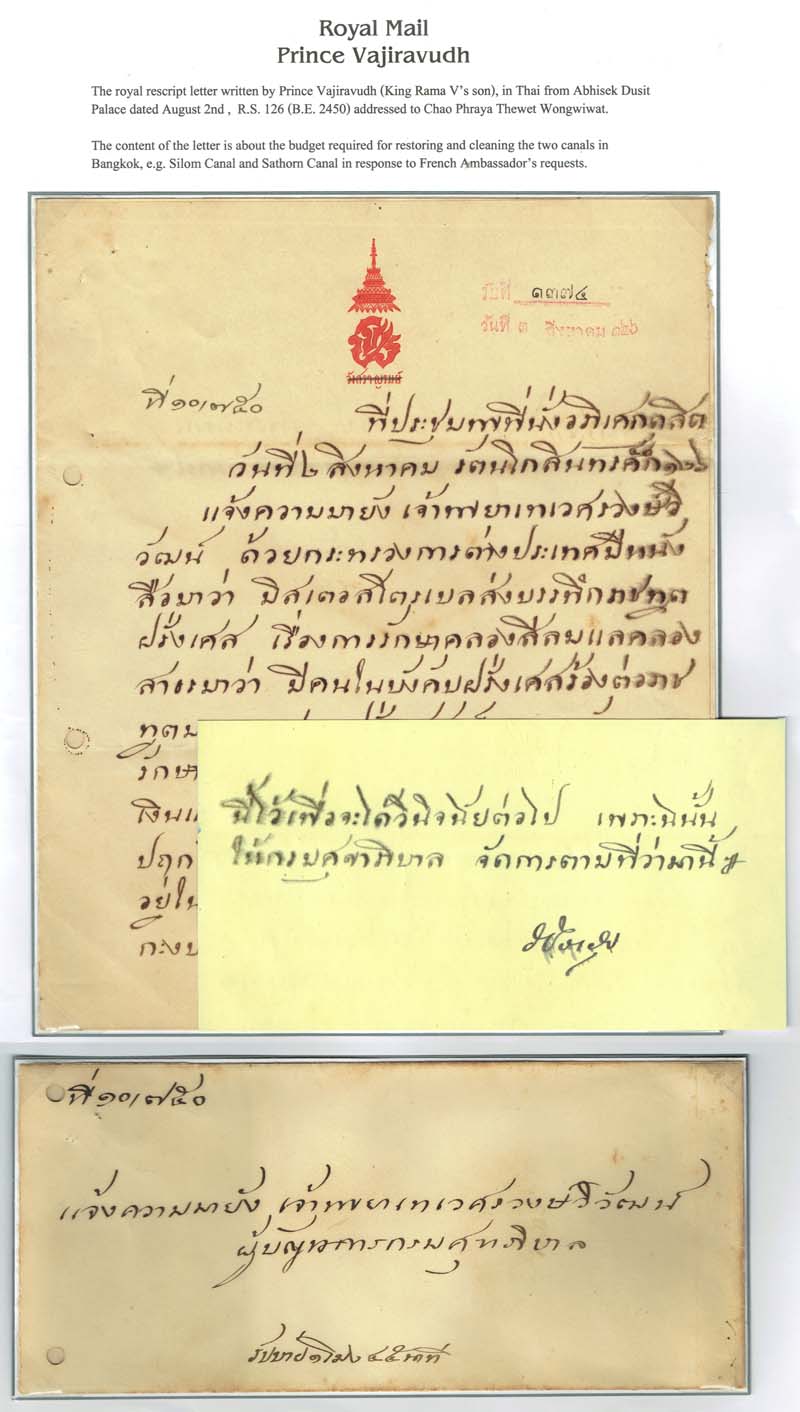 Royal Mail
Prince Vajiravudh
The royal rescript letter written by Prince Vajiravudh (King Rama V's son), in Thai from Abhisek Dusit
Palace dated August 2nd , R.S. 126 (B.E. 2450) addressed to Chao Phraya Thewet Wongwiwat.
The content of the letter is about the budget required for restoring and cleaning the two canals in
Bangkok, e.g. Silom Canal and Sathorn Canal in response to French Ambassador's requests.
รับที่ ๑๓๗๔
วันที่ ๓ สิงหาคม ๑๒๖
ที่ ๑๐/๗๕๐
ที่ประชุมพที่นั่งอภิเศกดุสิต
วันที่ ๒ สิงหาคม รัตนโกสินทรศก ๑๒๖
แจ้งความมายัง เจ้าพยาเทเวศรวงษ์วิ
วัฒน์ ด้วยกระทรวงการต่างประเทศมีหนัง
สือมาว่า มิสเตอสโตรเบลส่งบรรทึกราชทูต
ฝรั่งเศส เรื่องการรักษาคลองสีลมแลคลอง
สาธรมาว่า มีคนในบังคับฝรั่งเศสร้องต่อราช
ทูต
รักษา
เงิน
อยู่ใน
นี้ไว้เพื่อจะได้วินิจฉัยต่อไป เพราะฉนั้น
ให้กรมศุขาภิบาล จัดการตามที่ว่ามานี้
ที่ ๑๐/๗๕๐
แจ้งความมายัง เจ้าพยาเทเวศรวงษ์วิวัฒน์
ผู้บัญชาการกรมศุขาภิบาล
รับบ่าย ๑ โมง ๔๕ นาที